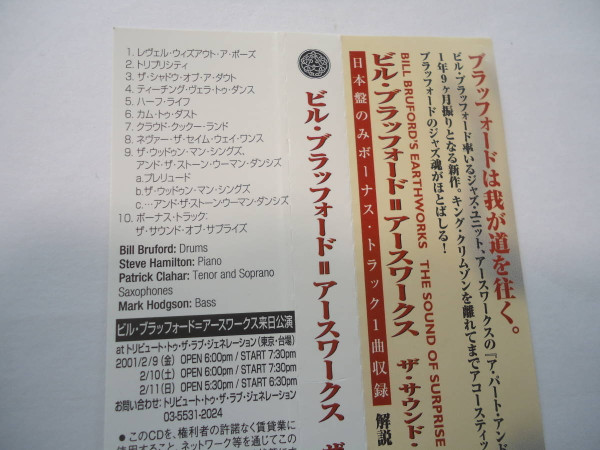 1. レヴェル・ウィズアウト・ア・ポーズ
2. トリプリシティ
3. ザ・シャドウ・オブ・ア・ダウト
4. ティーチング・ヴェラ・トゥ・ダンス
5. ハーフ・ライフ
6. カム・トゥ・ダスト
7. クラウド・クックー・ランド
8. ネヴァー・ザ・セイム・ウェイ・ワンス
9. ザ・ウッドゥン・マン・シングズ,
アンド・ザ・ストーン・ウーマン・ダンシズ
a.プレリュード
b.ザ・ウッドゥン・マン・シングズ
c.…アンド・ザ・ストーン・ウーマン・ダンシズ
10. ボーナス・トラック:
ザ・サウンド・オブ・サプライズ
Bill Bruford: Drums
Steve Hamilton: Piano
Patrick Clahar: Tenor and Soprano
Saxophones
Mark Hodgson: Bass
ビル・ブラッフォード=アースワークス来日公演
at トリビュート・トゥ・ザ・ラブ・ジェネレーション(東京・台場)
2001/2/9 (金) OPEN 6:00pm / START 7:30pm
2/10 (土) OPEN 6:00pm / START 7:30pm
2/11 (日) OPEN 5:30pm / START 6:30pm
お問い合わせ: トリビュート・トゥ・ザ・ラブ・ジェネレーション
03-5531-2024
● このCDを、権利者の許諾なく賃貸業に
使用すること、ネットワーク等を通じてこの
ビル・ブラッフォード=アースワークス ザ
ブラッフォードは我が道を往く。
ビル・ブラッフォード率いるジャズ・ユニット、アースワークスの『ア・パート・アンド
1年9ヶ月振りとなる新作。キング・クリムゾンを離れてまでアコースティッ
ブラッフォードのジャズ魂がほとばしる!
BILL BRUFORD'S EARTHWORKS THE SOUND OF SURPRISE
ビル・ブラッフォード=アースワークス ザ・サウンド・
日本盤のみボーナス・トラック1曲収録
解説